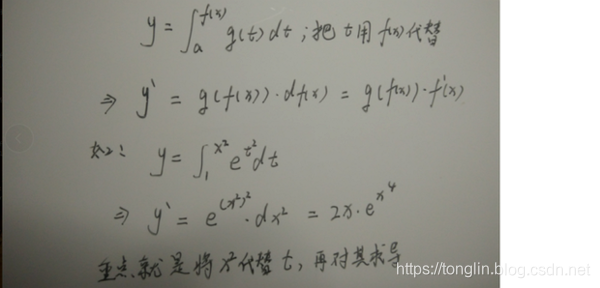 y = ∫ₐ^f(x) g(t) dt ; 把 t 用 f(x) 代替
⇒ y' = g(f(x)) · df(x) = g(f(x)) · f'(x)
如: y = ∫₁^x² e^t² dt
⇒ y' = e^(x²)² · dx² = 2x · e^x⁴
重点就是将 x² 代替 t, 再对其求导
https://tonglin.blog.csdn.net